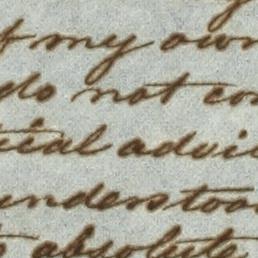 my own
do not con
ical advi
understoo
absolute